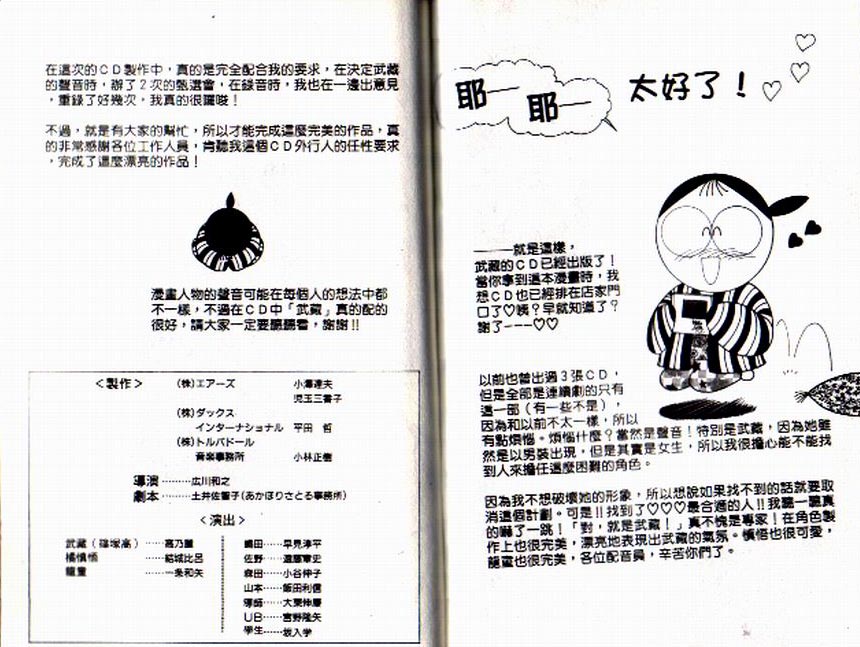 耶―
耶―
太好了！
———就是這樣，
武藏的ＣＤ已經出版了！
當你拿到這本漫畫時，我
想ＣＤ也已經排在店家門
口了♡咦？早就知道了？
謝了---♡♡
以前也曾出過３張ＣＤ，
但是全部是連續劇的只有
這一部（有一些不是），
因為和以前不太一樣，所以
有點煩惱。煩惱什麼？當然是聲音！特別是武藏，因為她雖
然是以男裝出現，但是其實是女生，所以我很擔心能不能找
到人來擔任這麼困難的角色。
因為我不想破壞她的形象，所以想說如果找不到的話就要取
消這個計劃。可是!!找到了♡♡♡最合適的人!!我聽一聽真
的嚇了一跳！「對，就是武藏！」真不愧是專家！在角色製
作上也很完美，漂亮地表現出武藏的氣氛。慎悟也很可愛，
龍童也很完美，各位配音員，辛苦你們了。
在這次的ＣＤ製作中，真的是完全配合我的要求，在決定武藏
的聲音時，辦了２次的甄選會，在錄音時，我也在一邊出意見
，重錄了好幾次，我真的很囉唆！
不過，就是有大家的幫忙，所以才能完成這麼完美的作品，真
的非常感謝各位工作人員，肯聽我這個ＣＤ外行人的任性要求
，完成了這麼漂亮的作品！
漫畫人物的聲音可能在每個人的想法中都
不一樣，不過在ＣＤ中「武藏」真的配的
很好，請大家一定要聽聽看，謝謝!!
＜製作＞ （株）エアーズ 小澤達夫
児玉三書子
（株）ダックス
インターナショナル 平田 哲
（株）トルバドール
音楽事務所 小林正樹
導演………広川和之
劇本………土井佐智子（あかほりさとる事務所）
＜演出＞
武藏（篠塚高）……高乃麗
橘慎悟……結城比呂
龍童……一条和矢
嶋田……早見淳平
佐野……遠藤章史
森田……小谷伸子
山本……飯田利信
導師……大栗伸慶
ＵＢ……宮野隆矢
學生……坂入学